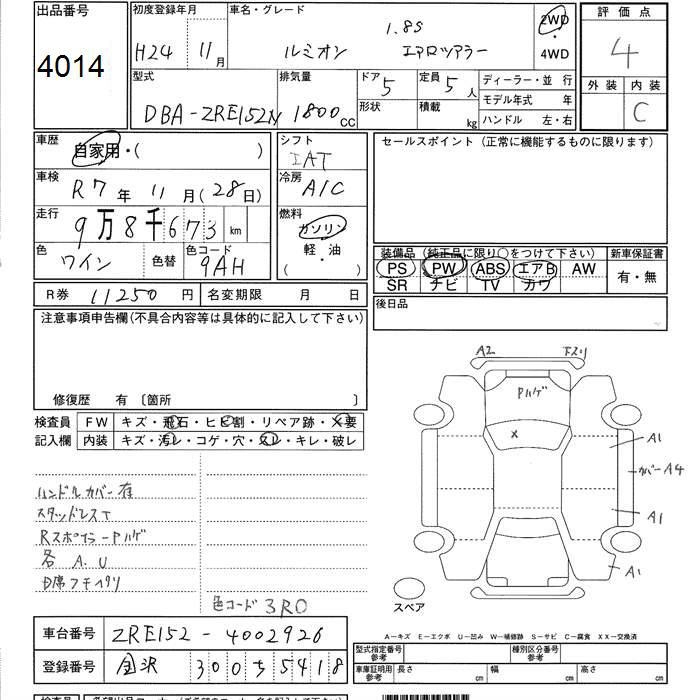 出品番号 4014
初度登録年月 H24 11月
車名・グレード 1.8S
ルミオン エアロツアラー
2WD ・ 4WD
評価点 4
外装 内装 C
型式 DBA-ZRE152N
排気量 1800cc
ドア 5 定員 5人
形状 積載 kg
ディーラー・並行
モデル年式 年
ハンドル 左・右
車歴 自家用・( )
シフト IAT
車検 R7年 11月(28日)
冷房 A/C
走行 9万8千673km
燃料 ガソリン
軽・油
( ・ )
色 ワイン 色替 色コード 9AH
セールスポイント (正常に機能するものに限ります)
装備品 (純正品に限り○をつけて下さい) 新車保証書
PS PW ABS エアB AW 有・無
SR ナビ TV カワ
R券 11250円 名変期限 月 日
後日品
注意事項申告欄(不具合内容等は具体的に記入して下さい)
修復歴 有 〔箇所 〕
検査員 FW キズ・飛石・ヒビ割・リペア跡・X要
記入欄 内装 キズ・汚レ・コゲ・穴・スレ・キレ・破レ
ハンドルカバー有
スタッドレスT
Rスポイラー-Pハゲ
各 A.U
色コード 3R0
A2 下スリ
Pハゲ
X
A1
カバーA4
A1
A1
スペア
A-キズ E-エクボ U-凹み W-補修跡 S-サビ C-腐食 XX-交換済
車台番号 ZRE152-4002926
登録番号 金沢 300 ち 5418
型式指定番号 参考 種別区分番号 参考
車庫証明用 参考 長さ cm 幅 cm 高さ cm